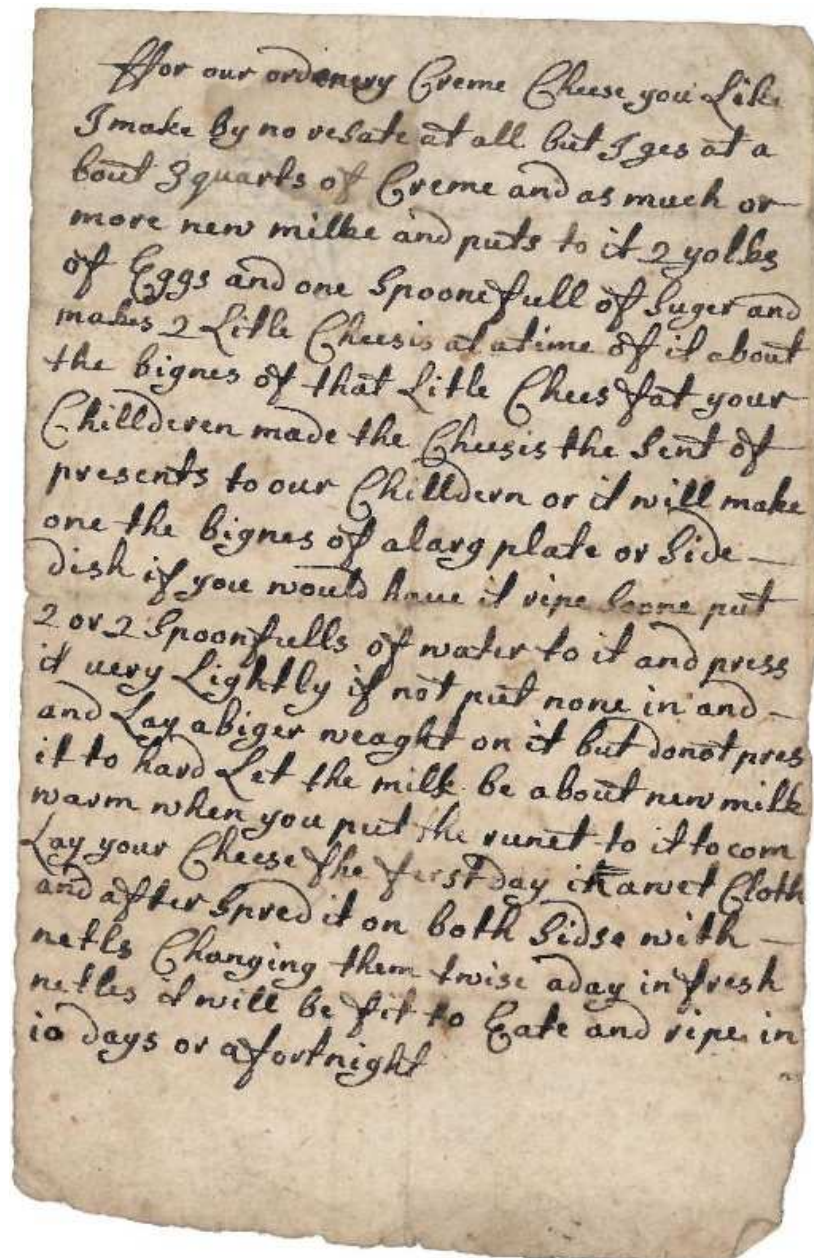 ffor our ordenery Creme Cheese you Like
I make by no resate at all but I ges at a
bout 3 quarts of Creme and as much or
more new milke and puts to it 2 yolks
of Eggs and one Spoonefull of Suger and
makes 2 Litle Cheesis at atime of it about
the bignes of that Litle Chees fat your
Chillderen made the Cheesis the Sent of
presents to our Chilldern or it will make
one the bignes of alarg plate or Side —
dish if you would haue it ripe Soone put
2 or 2 Spoonfulls of water to it and press
it uery Lightly if not put none in and —
and Lay abiger weaght on it but donot pres
it to hard Let the milk be about new milk
warm when you put the runet to it to com
Lay your Cheese the first day in a wet Cloth
and after Spred it on both Sidse with —
netls Changing them twise aday in fresh
netles it will be fit to Eate and ripe in
10 days or a fortnight